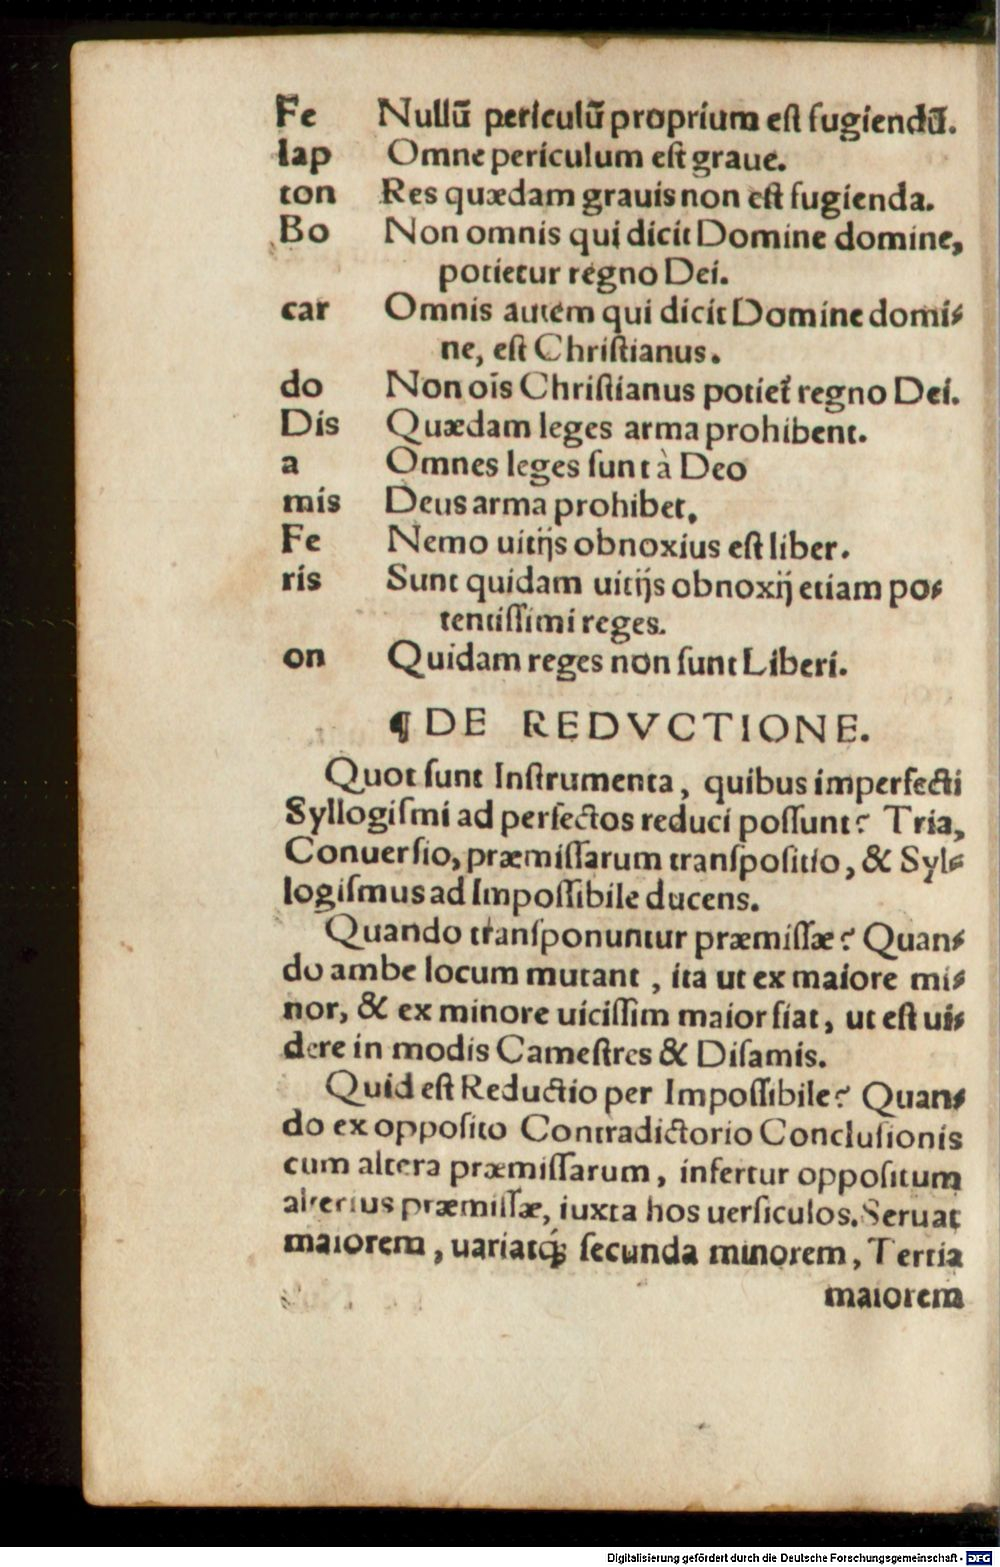 Fe Nullū periculū proprium eſt fugiendū.
lap Omne periculum eſt graue.
ton Res quædam grauis non eſt fugienda.
Bo Non omnis qui dicit Domine domine,
potietur regno Dei.
car Omnis autem qui dicit Domine domi⸗
ne, eſt Chriſtianus.
do Non oīs Chriſtianus potiet᷑ regno Dei.
Dis Quædam leges arma prohibent.
a Omnes leges ſunt à Deo
mis Deus arma prohibet.
Fe Nemo uitijs obnoxius eſt liber.
ris Sunt quidam uitijs obnoxij etiam po⸗
tentiſſimi reges.
on Quidam reges non ſunt Liberi.
¶ DE REDVCTIONE.
Quot ſunt Inſtrumenta, quibus imperfecti
Syllogiſmi ad perfectos reduci poſſunt? Tria,
Conuerſio, præmiſſarum tranſpoſitio, & Syl⸗
logiſmus ad Impoſſibile ducens.
Quando tranſponuntur præmiſſæ? Quan⸗
do ambe locum mutant, ita ut ex maiore mi⸗
nor, & ex minore uiciſſim maior fiat, ut eſt ui⸗
dere in modis Cameſtres & Diſamis.
Quid eſt Reductio per Impoſſibile? Quan⸗
do ex oppoſito Contradictorio Concluſionis
cum altera præmiſſarum, infertur oppoſitum
alterius præmiſſæ, iuxta hos uerſiculos. Seruat
maiorem, uariatq; ſecunda minorem, Tertia
maiorem
Digitalisierung gefördert durch die Deutsche Forschungsgemeinschaft - DFG